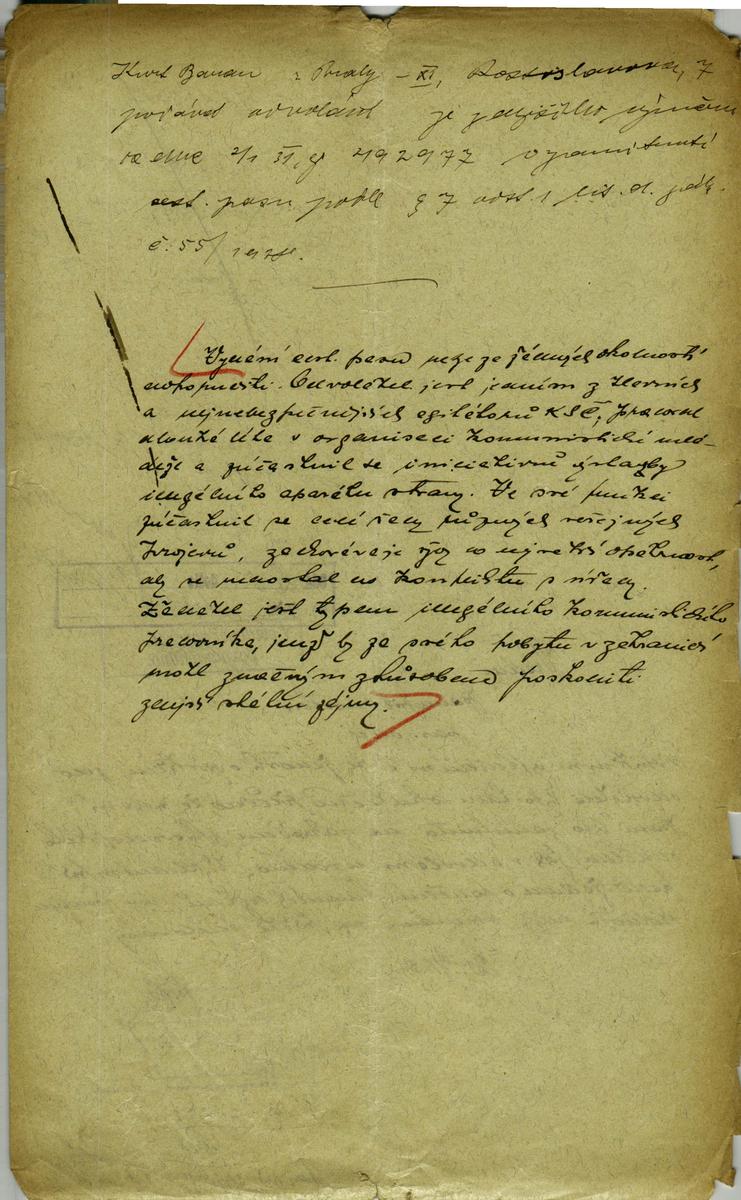 Kurt Beran z Prahy - XI, Rostislavova, 7
podává odvolání
ze dne 2/1 31, čj 292977 o zamítnutí
cest. pasu podle § 7 odst. 1 lit. d. zák.
č. 55/1928.
Vydání cest. pasu nelze za žádných okolností
doporučiti. Odvolatel jest jedním z hlavních
a nejnebezpečnějších agitátorů KSČ, pracoval
dlouhá léta v organisaci komunistické mlá-
deže a zúčastnil se iniciativně výstavby
ilegálního aparátu strany. Ve své funkci
zúčastnil se celé řady různých veřejných
projevů, zachovávaje vždy co největší opatrnost,
aby se nedostal do konfliktu s úřady.
Žadatel jest typem ilegálního komunistického
pracovníka, jenž by za svého pobytu v zahraničí
mohl značným způsobem poškoditi
zdejší státní zájmy.